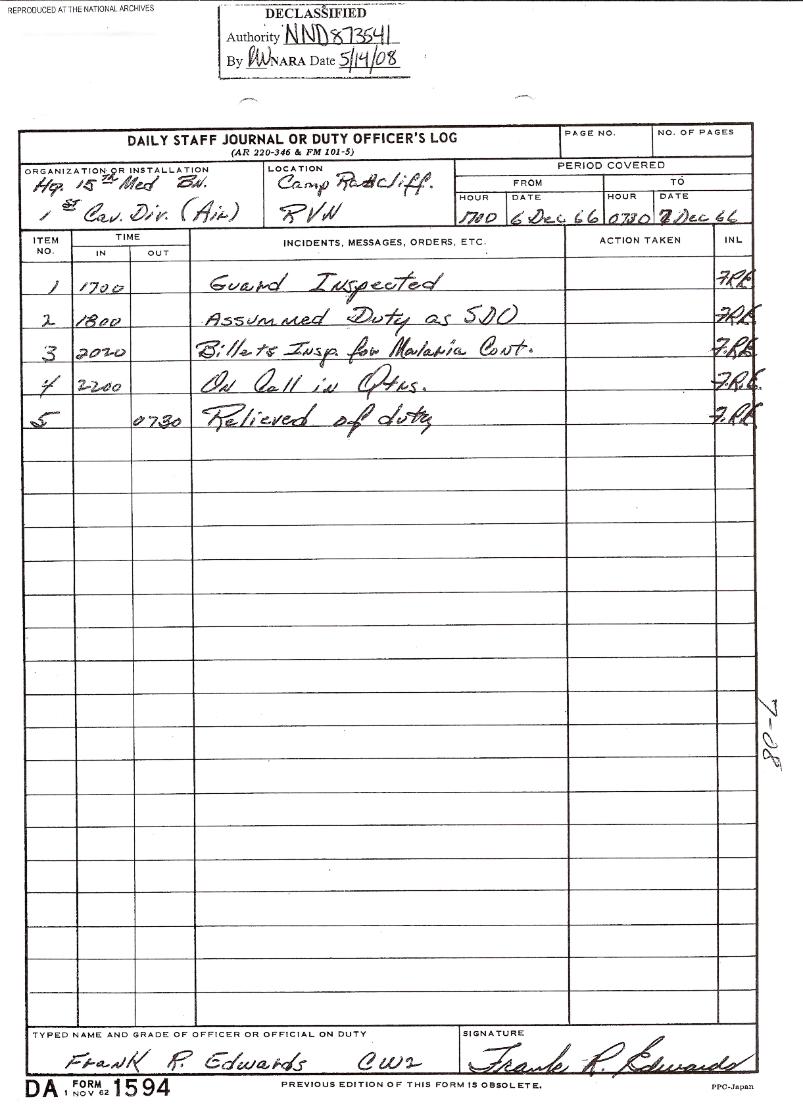 REPRODUCED AT THE NATIONAL ARCHIVES
DECLASSIFIED
Authority NND873541
By NARA Date 5/14/08
DAILY STAFF JOURNAL OR DUTY OFFICER'S LOG
(AR 220-346 & FM 101-5)
PAGE NO.
NO. OF PAGES
ORGANIZATION OR INSTALLATION
Hq. 15th Med Bn.
1st Cav. Div. (Air)
LOCATION
Camp Radcliff.
RVN
PERIOD COVERED
FROM TO
HOUR DATE HOUR DATE
1700 6 Dec 66 0730 7 Dec 66
ITEM NO. TIME IN OUT INCIDENTS, MESSAGES, ORDERS, ETC. ACTION TAKEN INL
1 1700 Guard Inspected FRE
2 1800 Assummed Duty as SDO FRE
3 2020 Billets Insp. for Malaria Cont. F.RE
4 2200 On Call in Qtrs. F.R.E.
5 0730 Relieved of duty F.RE
7-08
TYPED NAME AND GRADE OF OFFICER OR OFFICIAL ON DUTY
Frank R. Edwards CW2
SIGNATURE
Frank R. Edwards
DA FORM 1 NOV 62 1594
PREVIOUS EDITION OF THIS FORM IS OBSOLETE.
PPC-Japan